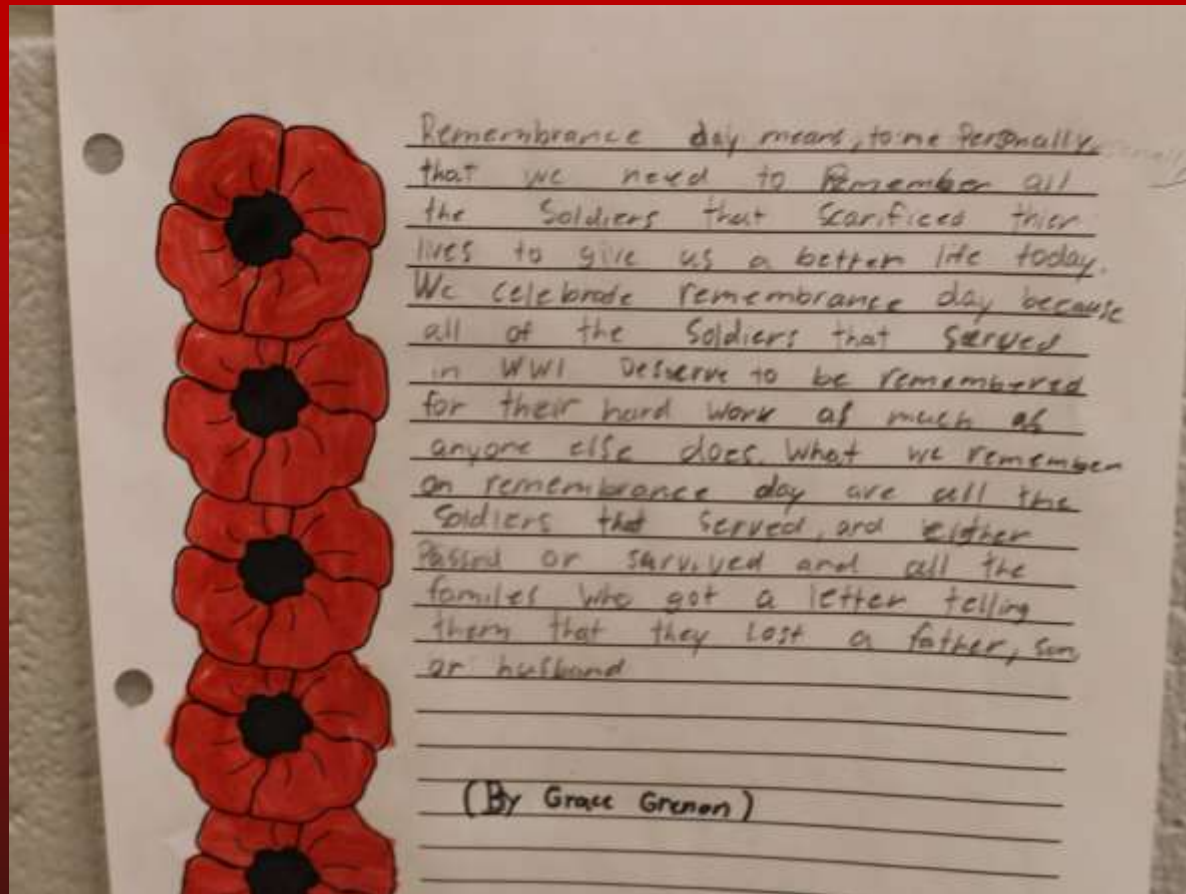 Remembrance day means, to me Personally,
that we need to Remember all
the Soldiers that Scarificed thier
lives to give us a better life today.
We celebrate remembrance day because
all of the Soldiers that Served
in WW1 Deserve to be remembered
for their hard work as much as
anyone else does. What we remember
on remembrance day are all the
Soldiers that Served, and either
Passed or survived and all the
familes who got a letter telling
them that they Lost a father, son
or husband
(By Grace Grenon)